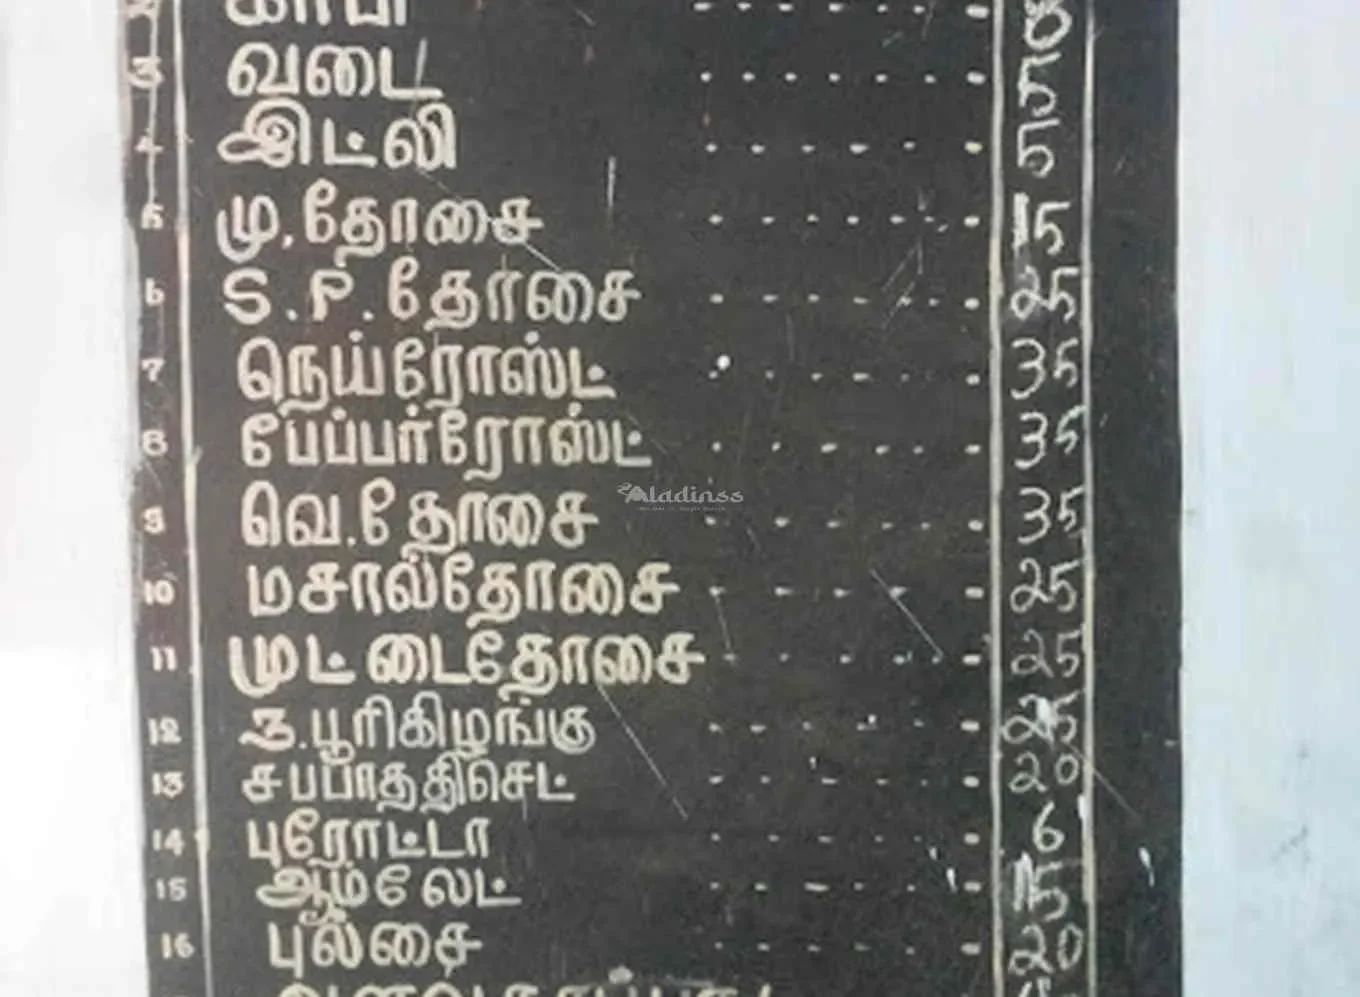 2 காபி - - - - - - 8
3 வடை - - - - - - 5
4 இட்லி - - - - - 5
5 மு.தோசை - - - - - - 5
6 S.P.தோசை - - - - - - 25
7 நெய்ரோஸ்ட் - - - - - - 35
8 பேப்பர்ரோஸ்ட் - - - - - - 35
9 வெ.தோசை - - - - - - 35
10 மசால்தோசை - - - - - 25
11 முட்டைதோசை - - - - - - 25
12 3.பூரிகிழங்கு - - - - - - 25
13 சப்பாத்திசெட் - - - - - - 20
14 புரோட்டா - - - - - - 6
15 ஆம்லேட் - - - - - -
16 புல்சை - - - - - - 20
Aladinss